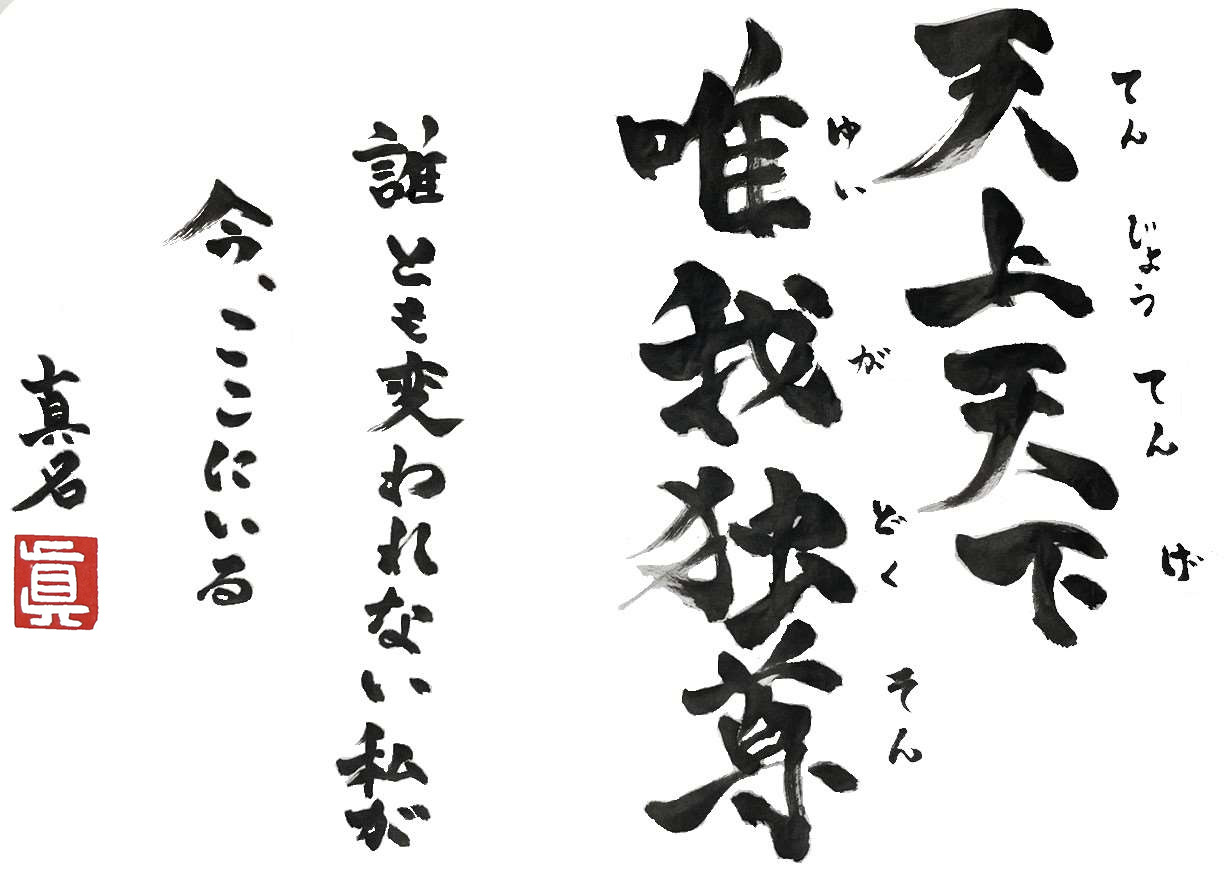 天上天下
てんじょうてんげ
唯我独尊
ゆいがどくそん
誰とも変われない私が
今、ここにいる
真名
眞